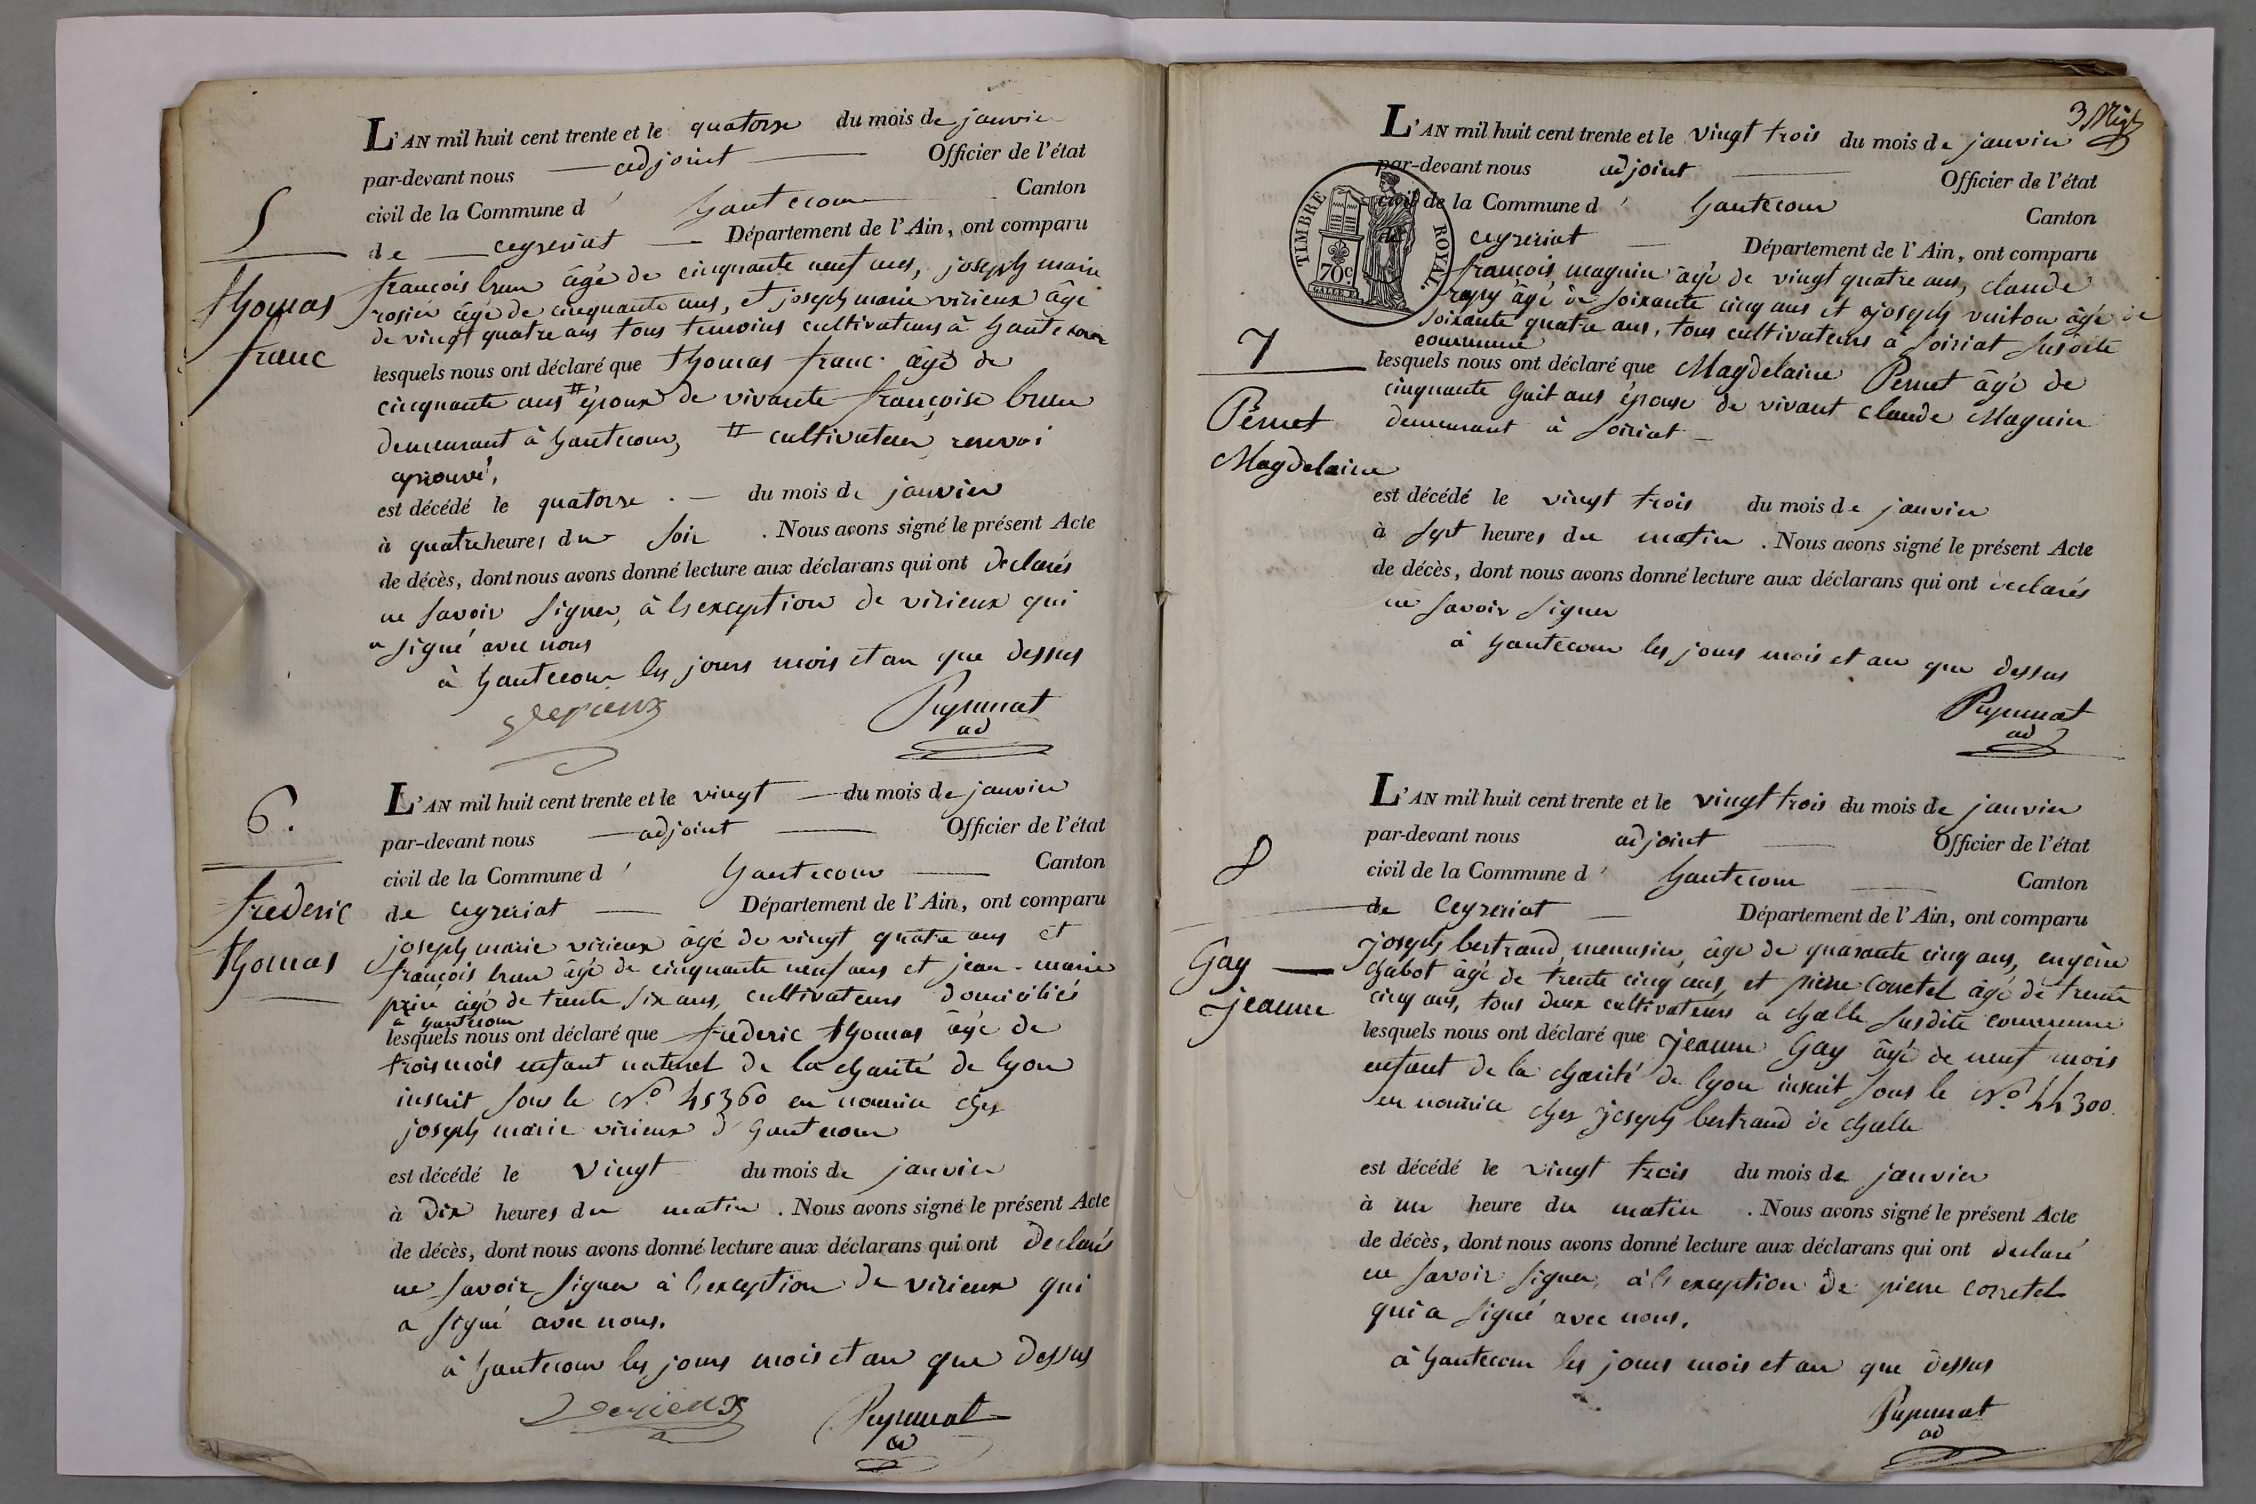 5
thomas
franc
L'AN mil huit cent trente et le quatorse du mois de janvier
par-devant nous adjoint Officier de l'état
civil de la Commune d' hautecour Canton
de ceyzeriat Département de l'Ain, ont comparu
françois brun âgé de cinquante neuf ans, joseph marie
rosier âgé de cinquante ans, et joseph marie virieux âgé
de vingt quatre ans tous temoins cultivateurs à hautecour
lesquels nous ont déclaré que thomas franc âgé de
cinquante ans # époux de vivante françoise brun
demeurant à hautecour, # cultivateur, renvoi
aprouvé,
est décédé le quatorse du mois de janvier
à quatre heures du soir. Nous avons signé le présent Acte
de décès, dont nous avons donné lecture aux déclarans qui ont declarés
ne savoir signer, à l'exception de virieux qui
a signé avec nous
à hautecour les jours mois et an que dessus
ad
6.
frederic
thomas
L'AN mil huit cent trente et le vingt du mois de janvier
par-devant nous adjoint Officier de l'état
civil de la Commune d' hautecour Canton
de ceyzeriat Département de l'Ain, ont comparu
joseph marie virieux âgé de vingt quatre ans et
françois brun âgé de cinquante neuf ans et jean-marie
âgé de trente six ans, cultivateurs domiciliés
a hautecour
lesquels nous ont déclaré que frederic thomas âgé de
trois mois enfant naturel de la charité de lyon
inscrit sous le N° 45360 en nourrice chez
joseph marie virieux d'hautecour
est décédé le vingt du mois de janvier
à dix heures du matin. Nous avons signé le présent Acte
de décès, dont nous avons donné lecture aux déclarans qui ont declarés
ne savoir signer à l'exception de virieux qui
a signé avec nous.
à hautecour les jours mois et an que dessus
ad
3
TIMBRE ROYAL
70 c.
7
Pernet
Magdelaine
L'AN mil huit cent trente et le vingt trois du mois de janvier
par-devant nous adjoint Officier de l'état
civil de la Commune d' hautecour Canton
de ceyzeriat Département de l'Ain, ont comparu
françois magnin âgé de vingt quatre ans, claude
âgé de soixante cinq ans et joseph vuiton âgé de
soixante quatre ans, tous cultivateurs à soiriat susdite
commune
lesquels nous ont déclaré que Magdelaine Pernet âgé de
cinquante huit ans épouse de vivant claude Magnin
demeurant à soiriat
est décédé le vingt trois du mois de janvier
à sept heures du matin. Nous avons signé le présent Acte
de décès, dont nous avons donné lecture aux déclarans qui ont declarés
ne savoir signer
à hautecour les jours mois et an que dessus
ad
8
Gay
jeanne
L'AN mil huit cent trente et le vingt trois du mois de janvier
par-devant nous adjoint Officier de l'état
civil de la Commune d' hautecour Canton
de Ceyzeriat Département de l'Ain, ont comparu
joseph bertrand, menusier, âgé de quarante cinq ans, eugène
chabot âgé de trente cinq ans, et pierre corretel âgé de trente
cinq ans, tous deux cultivateurs a challe susdite commune
lesquels nous ont déclaré que jeanne Gay âgé de neuf mois
enfant de la charité de lyon inscrit sous le N° 44300.
en nourrice chez joseph bertrand de challe
est décédé le vingt trois du mois de janvier
à un heure du matin. Nous avons signé le présent Acte
de décès, dont nous avons donné lecture aux déclarans qui ont declaré
ne savoir signer, à l'exception de pierre corretel
qui a signé avec nous.
à hautecour les jours mois et an que dessus
ad